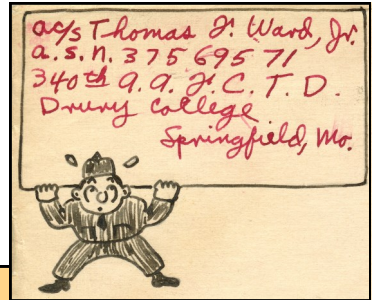 a/s Thomas F. Ward, Jr.
a.s.n. 375 695 71
340th a.a.F.C.T.D.
Drury College
Springfield, Mo.